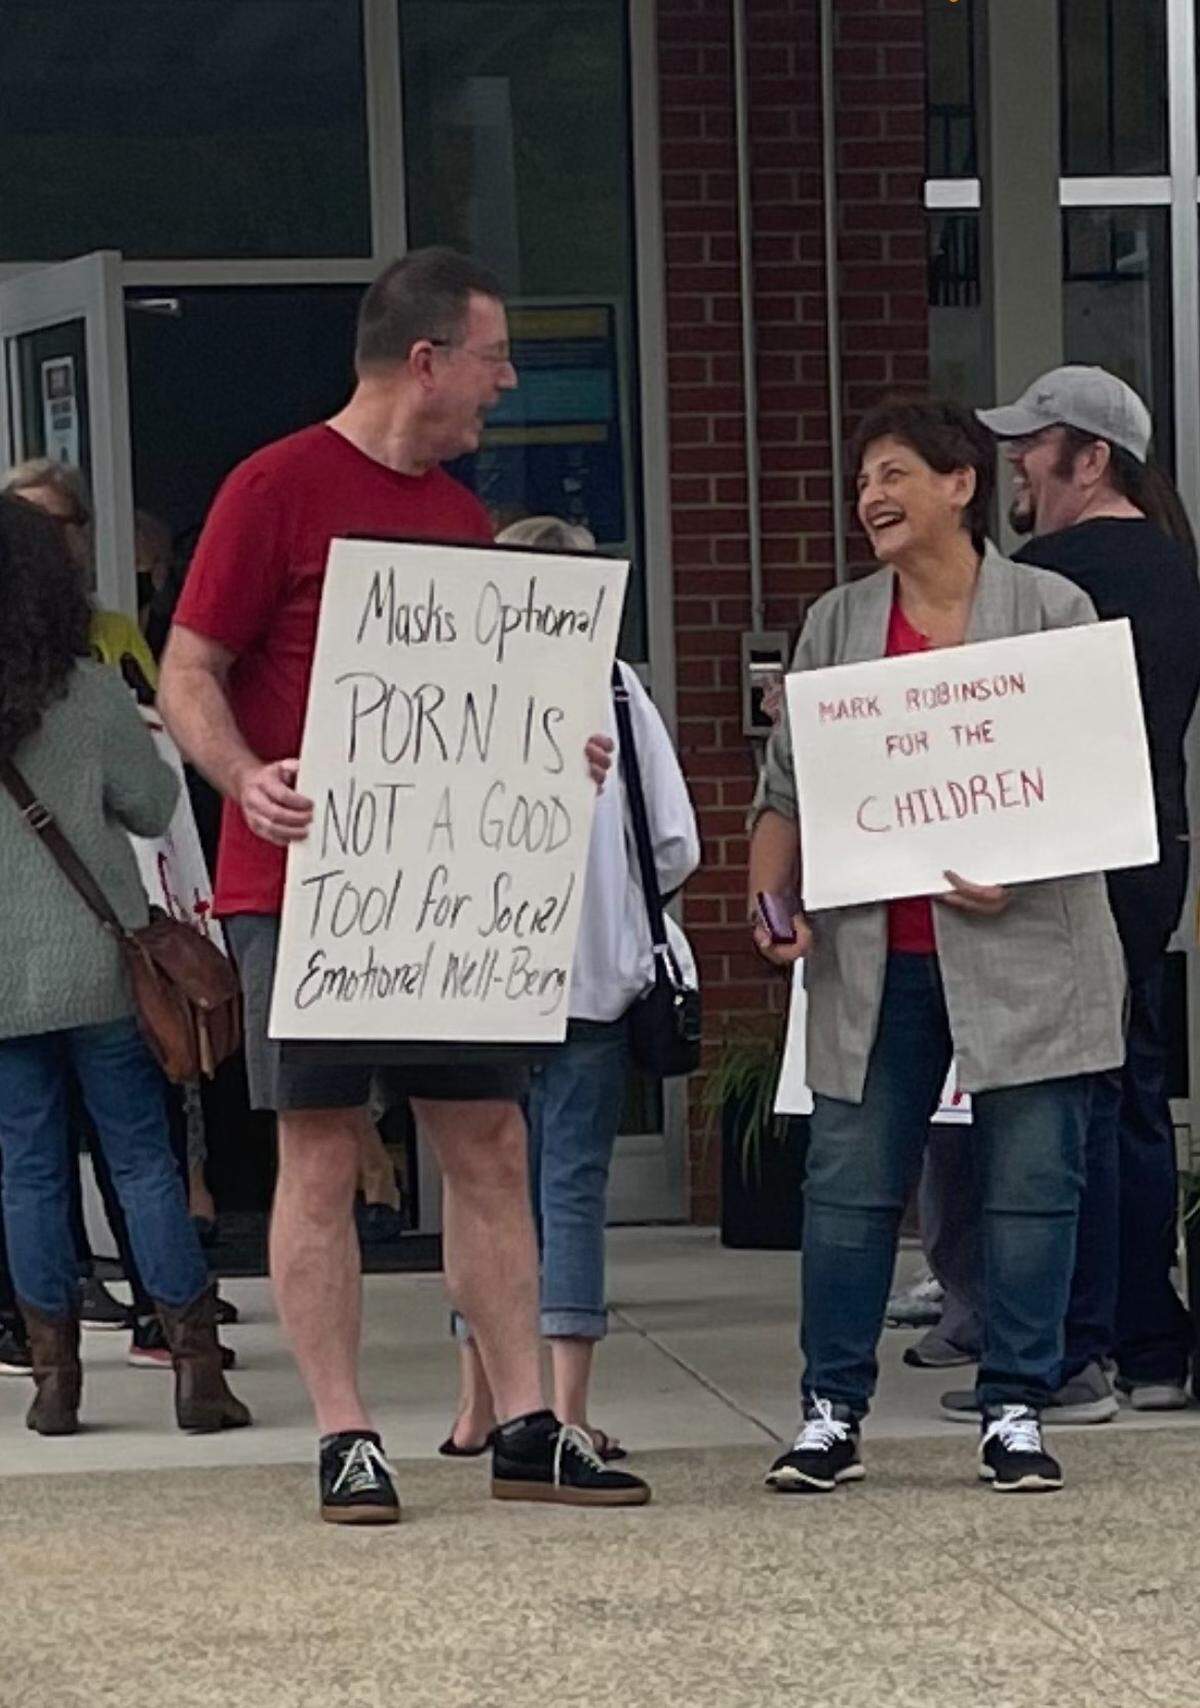 Masks Optional
PORN IS
NOT A GOOD
TOOl for Social
Emotional Well-Being
MARK ROBINSON
FOR THE
CHILDREN